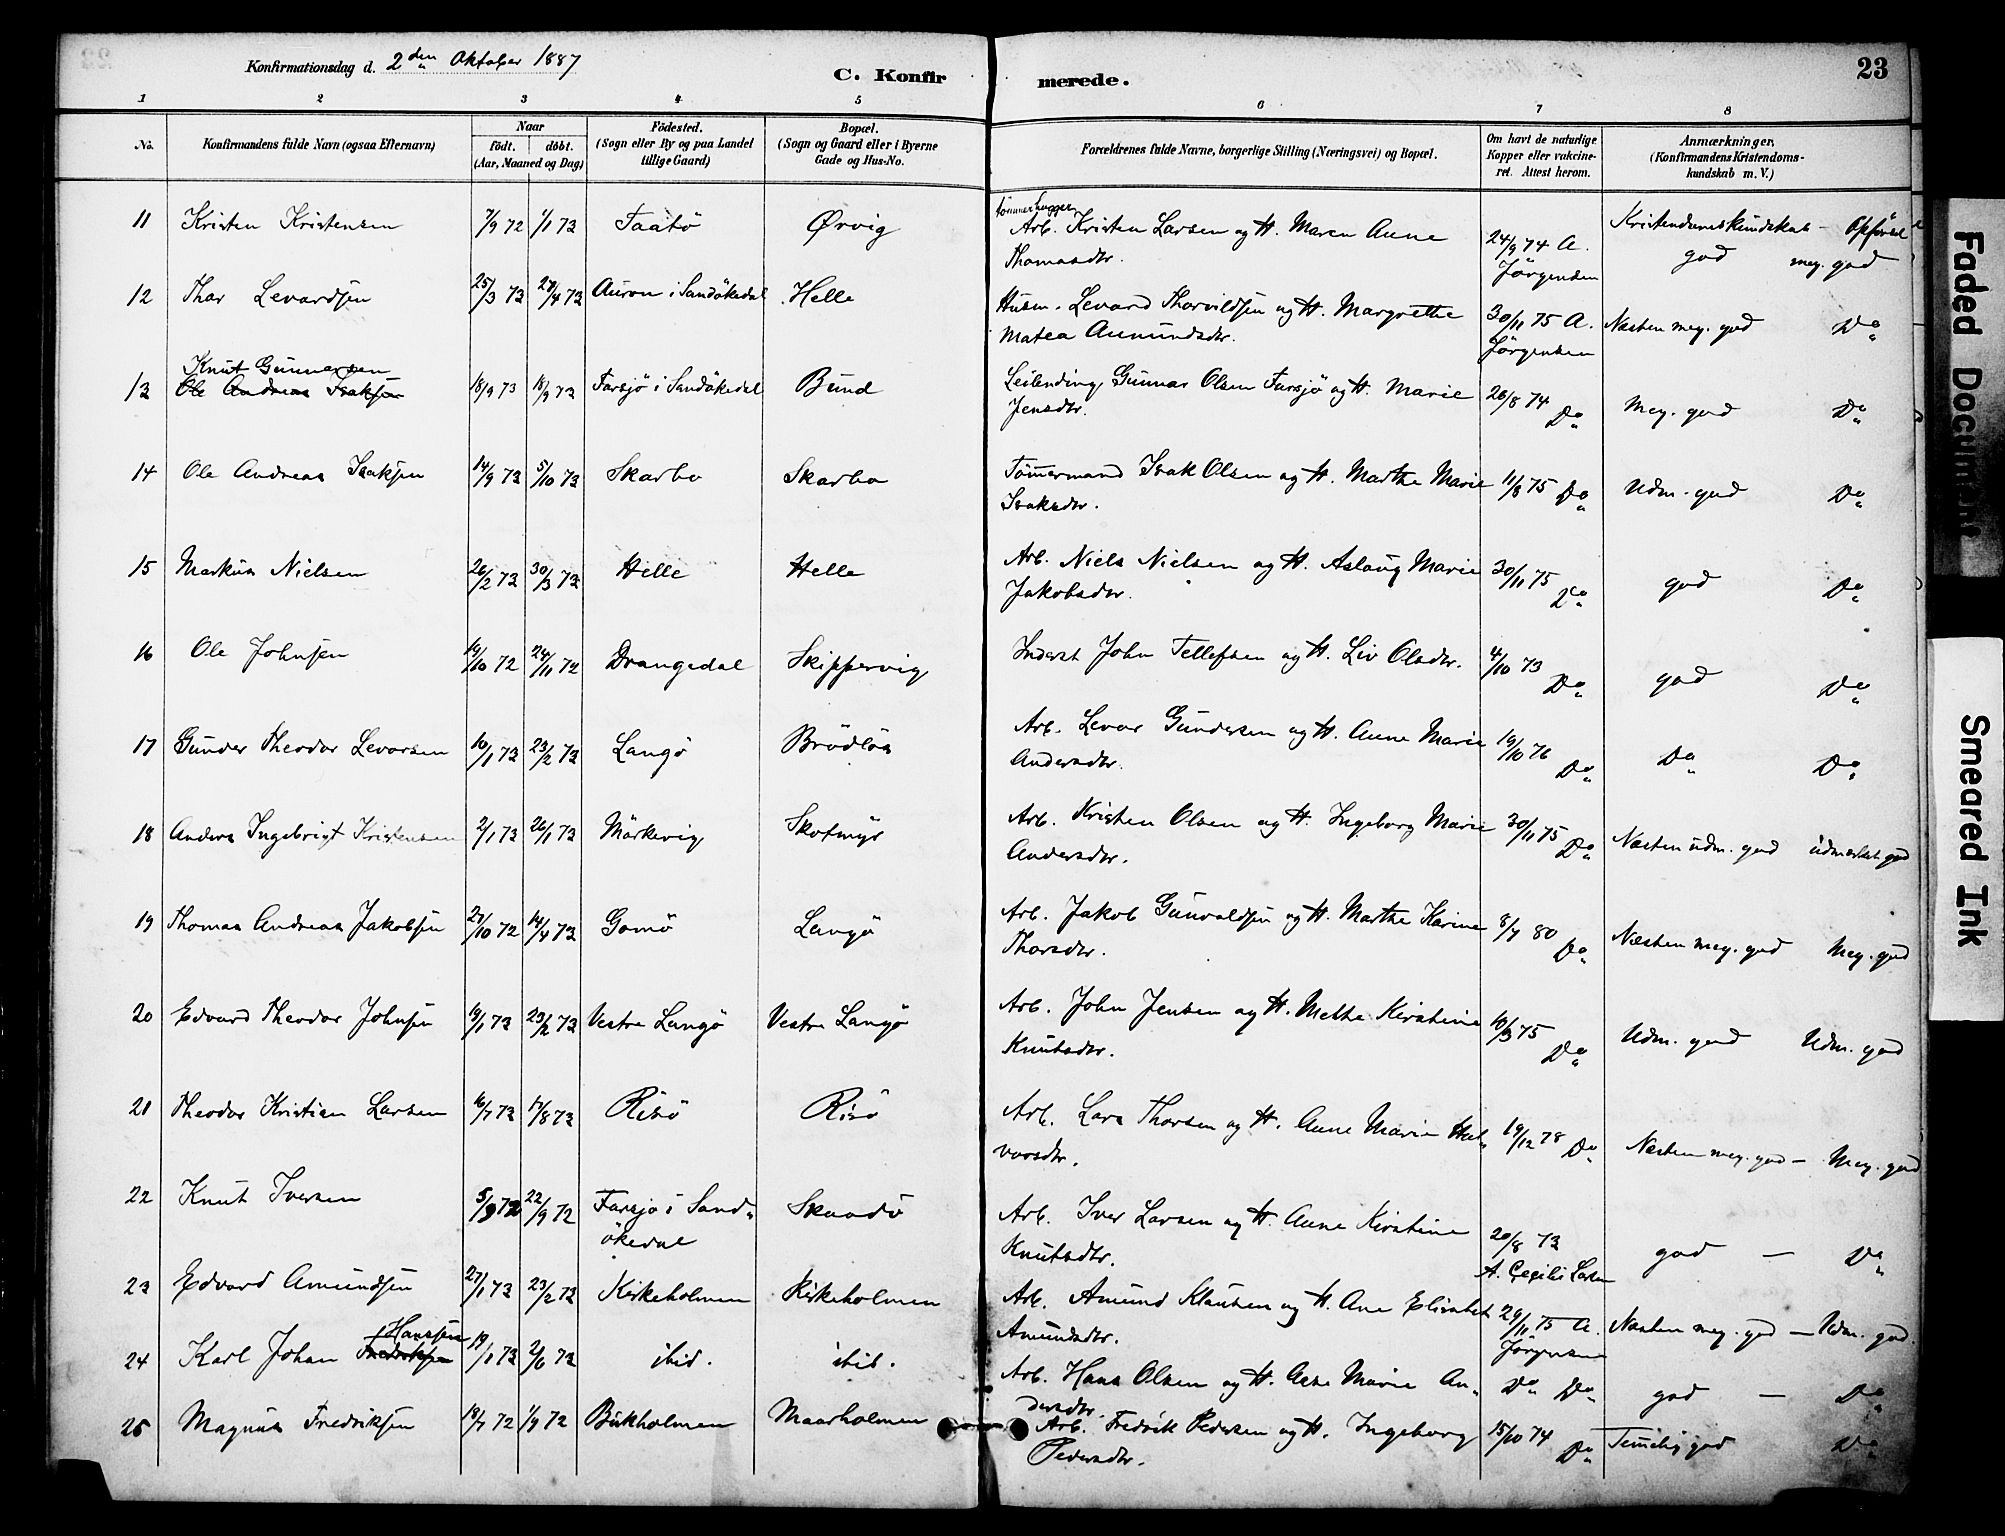 Konfirmationsdag d. 2den Oktober 1887
C. Konfirmerede.
23
1 2 3 4 5 6 7 8
No. Konfirmandens fulde Navn (ogsaa Efternavn) Naar födt. döbt. (Aar, Maaned og Dag) Födested. (Sogn eller By og paa Landet tillige Gaard) Bopæl. (Sogn og Gaard eller i Byerne Gade og Hus-No. Forældrenes fulde Navne, borgerlige Stilling (Næringsvei) og Bopæl. Om havt de naturlige Kopper eller vakcineret. Attest herom. Anmærkninger, (Konfirmandens Kristendomskundskab m. V.)
11 Kristen Kristensen 7/9 72 1/1 73 Taatö Ørvig Tømmerhugger Arb. Kristen Larsen og H. Maren Anne 24/9 74 A. Kristendomskundskab - Opförsel
Thomasdtr. Jörgensen god meg. god
12 Thor Levardsen 25/3 73 27/4 73 i Sandökedal Helle Husm. Levard Thorvildsen og H. Margrethe 30/11 75 A. Næsten meg. god Do
Matea Aumundsdtr. Jörgensen
Knut Gunnersen
13 Ole Andreas Isaksen 18/9 73 Farsjö i Sandökedal Bund Leilending Gunnar Olsen Farsjö og H. Marie 26/8 74 Do Meg. god Do
Jensdtr.
14 Ole Andreas Isaksen 14/9 73 5/10 73 Skarbo Skarbo Tømmermand Isak Olsen og H. Marthe Marie 11/8 75 Do Udm. god Do
Isaksdtr.
15 Markus Nielsen 26/2 73 30/3 73 Helle Helle Arb. Niels Nielsen og H. Aslaug Marie 30/11 75 Do god Do
Jakobsdtr.
16 Ole Johnsen 19/10 72 24/11 72 Drangedal Skippervig Inderst John Tellefsen og H. Liv Olsdtr. 4/10 73 Do god Do
17 Gunder Theodor Levorsen 10/1 73 23/2 73 Langö Brödlös Arb. Levor Gundersen og H. Anne Marie 19/10 76 Do Do Do
Andersdtr.
18 Anders Ingebrigt Kristensen 2/1 73 26/1 73 Mörkevig Skotmyr Arb. Kristen Olsen og H. Ingeborg Marie 30/11 75 Do Næsten udm. god udmerket god
Andersdtr.
19 Thomas Andreas Jakobsen 27/10 72 14/4 73 Gomö Langö Arb. Jakob Gunvaldsen og H. Marthe Karine 8/7 80 Do Næsten meg. god Meg. god
Thorsdtr.
20 Edvard Theodor Johnsen 19/1 73 23/2 73 Vestre Langö Vestre Langö Arb. John Jensen og H. Methe Kirstine 10/9 75 Do Udm. god Udm. god
Knutsdtr.
21 Theodor Kristian Larsen 16/7 73 17/8 73 Risö Risö Arb. Lars Thorsen og H. Anne Marie Hal- 19/12 78 Do Næsten meg. god - Meg. god
vorsdtr.
22 Knut Iversen 72 22/9 72 Farsjö i Sand- Skaadö Arb. Iver Larsen og H. Anne Kirstine 20/8 73 god - Do
ökedal Knutsdtr. A. Cecilie Larsen
23 Edvard Amundsen 27/1 73 23/2 73 Kirkeholmen Kirkeholmen Arb. Amund Klausen og H. Ane Elisabet 26/11 75 A. Næsten meg. god - Udm. god
Amundsdtr. Jörgensen
Hanssen
24 Karl Johan Fredriksen 19/1 73 2/6 73 ibid. ibid. Arb. Hans Olsen og H. Anne Marie An- Do Do god - Do
dersdtr.
25 Magnus Fredriksen 18/7 72 1/9 72 Birkholmen Maarholmen Arb. Fredrik Pedersen og H. Ingeborg 15/10 74 Do Temelig god Do
Pedersdtr.
Faded Document
Smeared Ink